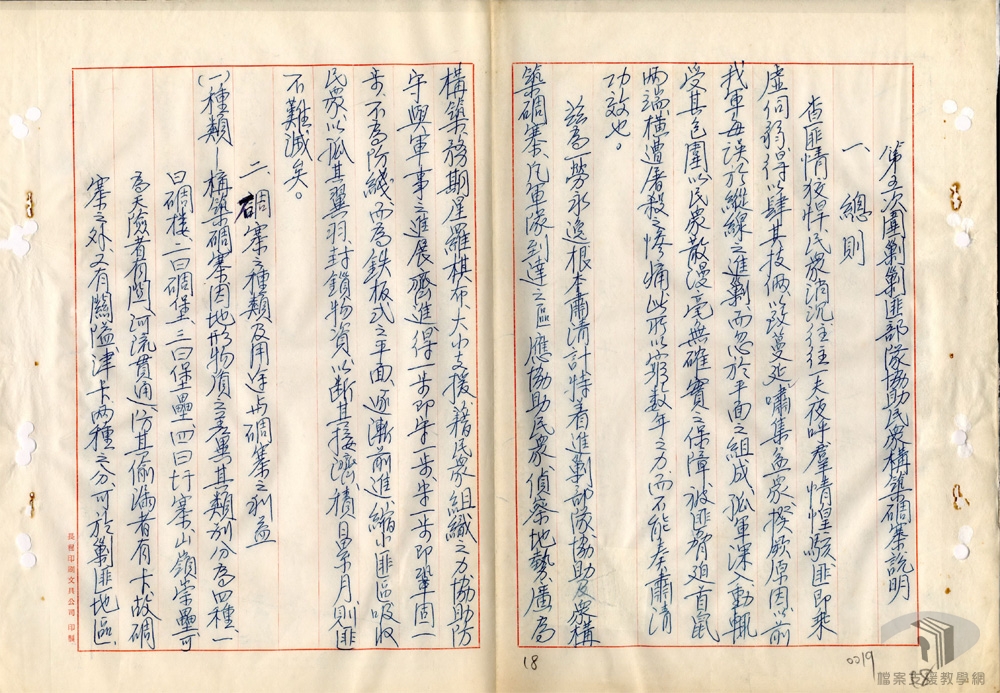 第五次圍剿剿匪部隊協助民衆構築碉寨說明
一、總則
查匪情狡悍，民衆消沉，往往一夫夜呼，羣情惶駭，匪即乘
虛伺弱，得以肆其技倆，以致蔓延嘯集益衆，揆厥原因，前
我軍每誤於縱線之進剿，而忽於平面之組成，孤軍深入，動輒
受其包圍，以民衆散漫，毫無確實之保障，被匪脅迫，首鼠
兩端，橫遭屠殺之慘痛，此所以窮數年之力，而不能奏肅清
功效也。
茲為一勞永逸根本肅清計，特着進剿部隊協助民衆構
築碉寨，凡軍隊到達之區，應協助民衆偵察地勢，廣為
構築，務期星羅棋布，大小支援，藉民衆組織之力，協助防
守，與軍事之進展齊進，得一步即守一步，守一步即鞏固一
步，不為防線，而為鉄板式之平面，逐漸前進，縮小匪區，吸收
民衆，以孤其翼羽，封鎖物資，以斷其接濟，積日累月，則匪
不難滅矣。
二、碉寨之種類及用途與碉寨之利益
(一)種類－構築碉寨因地形物資之差異，其類別分為四種，一
曰碉樓，二曰碉堡，三曰堡壘，四曰圩寨，山嶺崇疊可
為天險者有關，河流貫通，防其偷漏者有卡，故碉
寨之外，又有關隘津卡兩種之分，可於剿匪地區，
長程印刷文具公司 印製
18
0019
18
檔案支援教學網